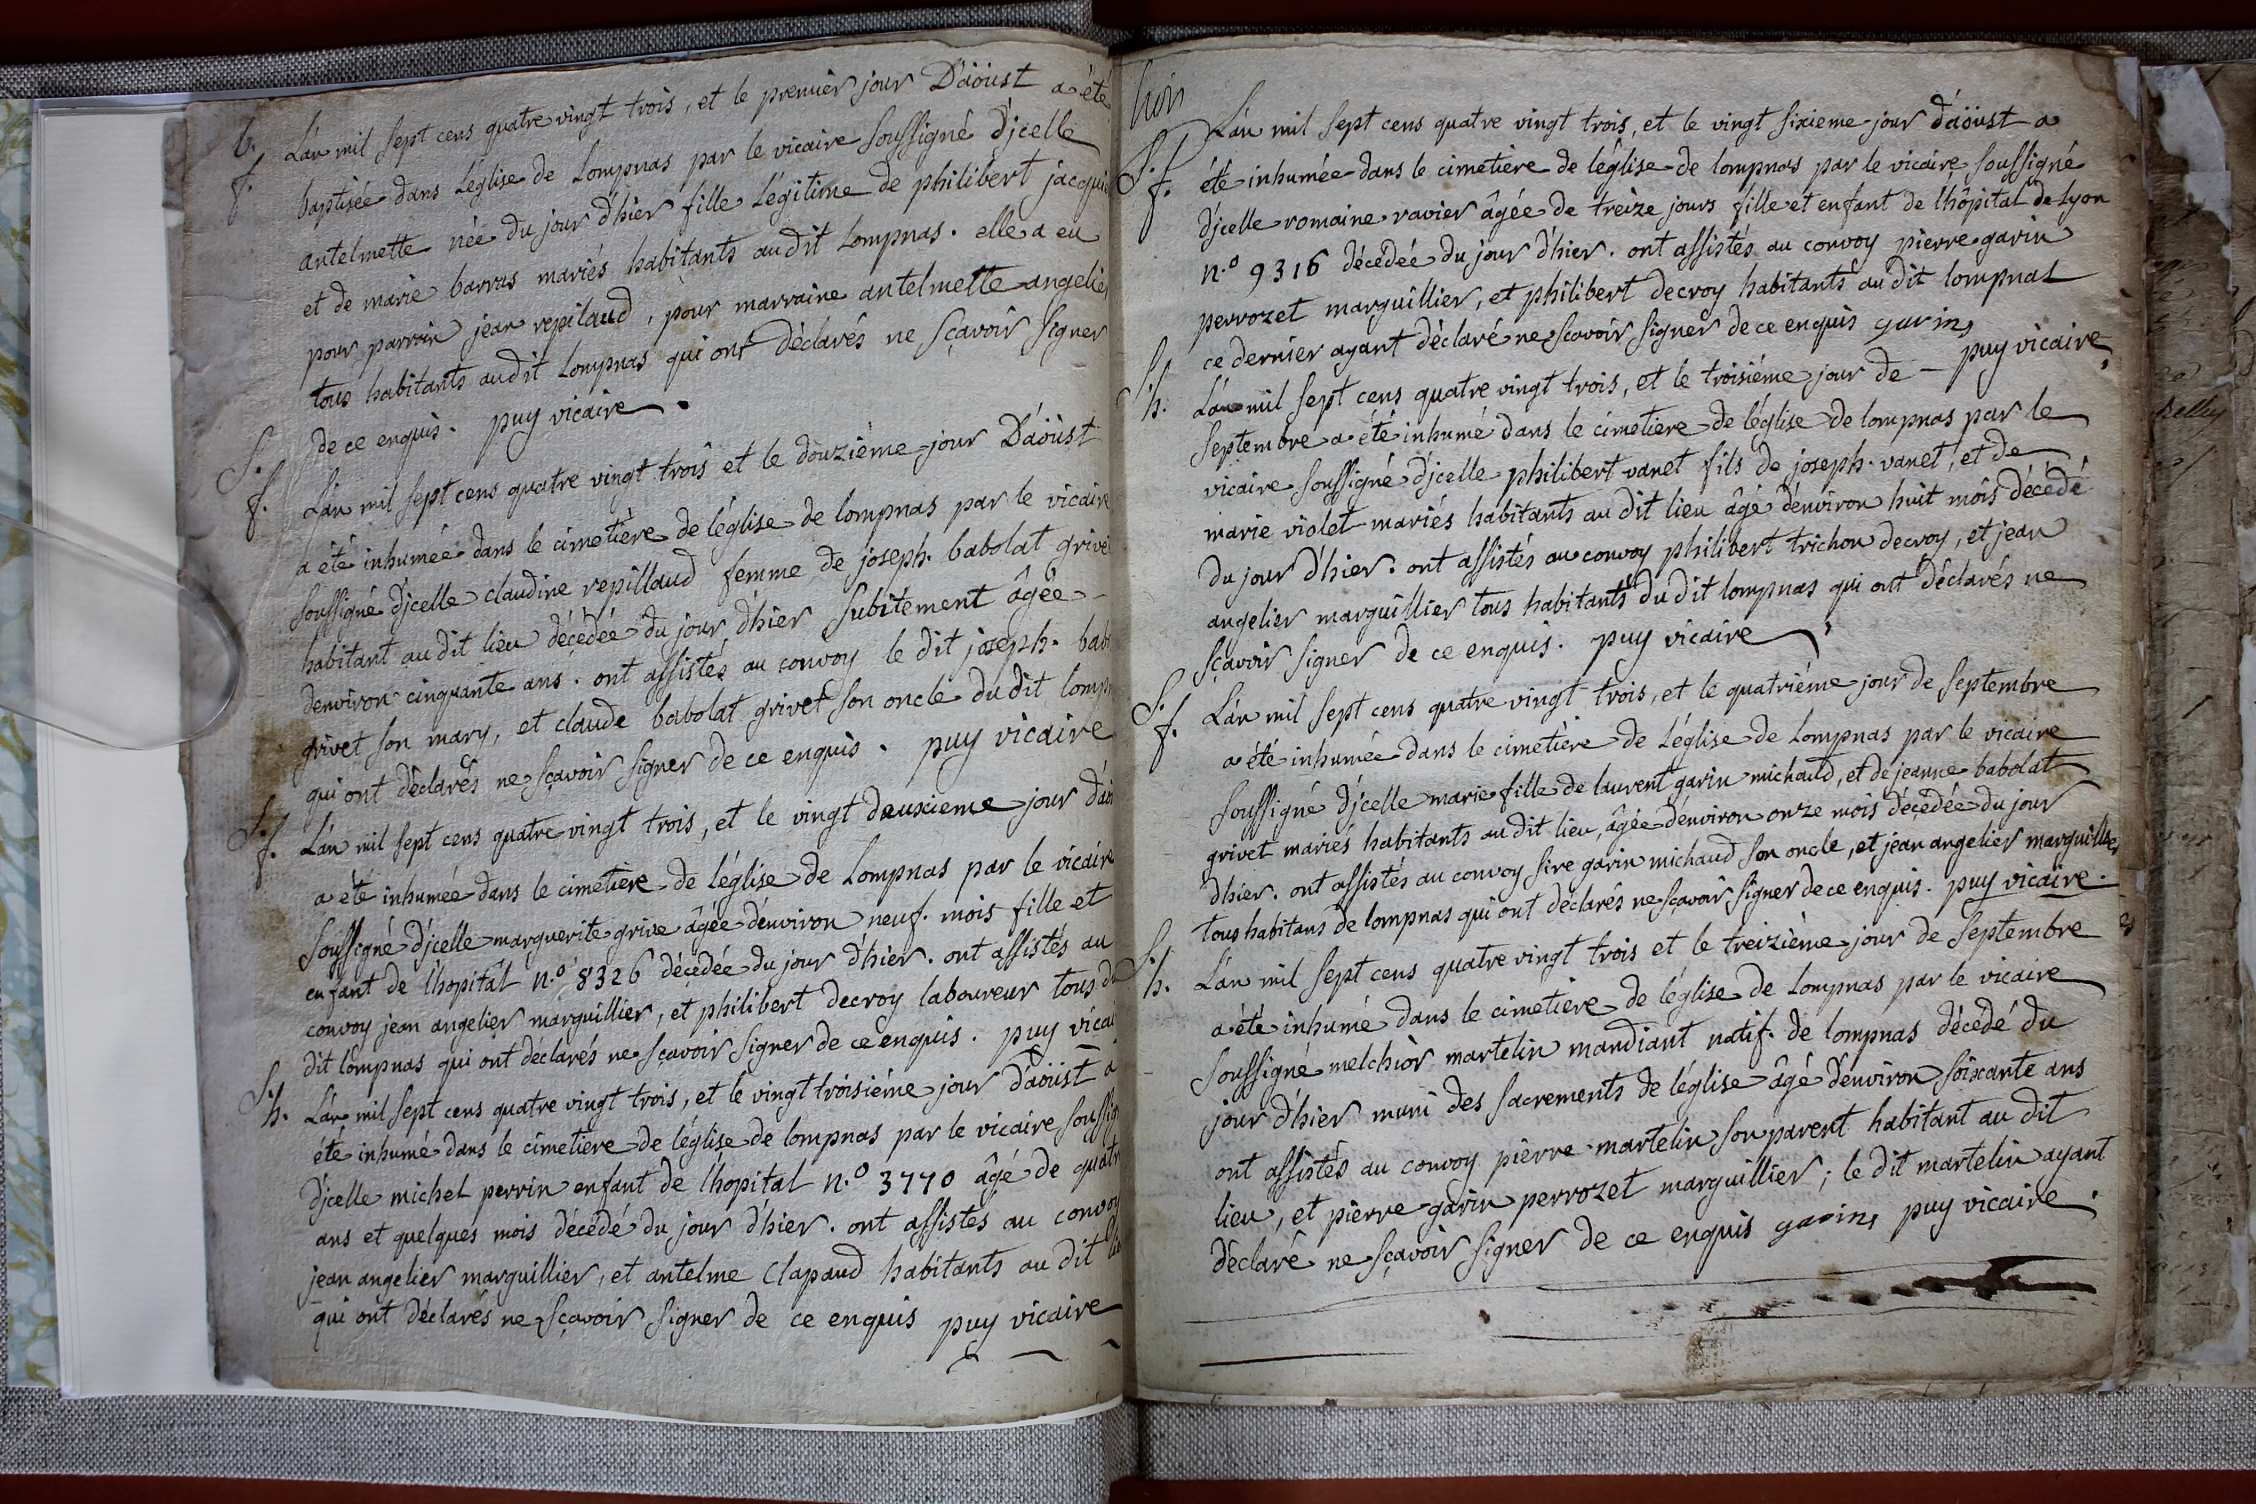 b.
f.
L'an mil sept cens quatre vingt trois, et le premier jour D'aöust a été
baptisée dans L'église de Lompnas par le vicaire soussigné D'jcelle
antelmette née du jour d'hier fille Légitime de philibert jacquin
et de marie barras mariés habitants audit Lompnas. elle a eu
pour parrain jean repilaud, pour marraine antelmette angelier
tous habitants audit Lompnas qui ont déclarés ne sçavoir signer
de ce enquis. puy vicaire.
S.
f.
L'an mil sept cens quatre vingt trois et le douzième jour D'aöust
a été inhumée dans le cimetière de l'église de lompnas par le vicaire
soussigné d'jcelle claudine repillaud femme de joseph. babolat grivet
habitant au dit lieu décédée du jour d'hier subitement âgée
d'environ cinquante ans. ont assistés au convoy le dit joseph. bab
grivet son mary, et claude babolat grivet son oncle du dit lomp
qui ont déclarés ne sçavoir signer de ce enquis. puy vicaire
S.
f.
L'an mil sept cens quatre vingt trois, et le vingt deuxieme jour d'aö
a été inhumée dans le cimetière de l'église de Lompnas par le vicaire
soussigné d'jcelle marguerite grive âgée d'environ neuf. mois fille et
enfant de l'hopital n.º 8326 décédée du jour d'hier. ont assistés au
convoy jean angelier marguillier, et philibert decroy laboureur tous du
dit lompnas qui ont déclarés ne sçavoir signer de ce enquis. puy vicai
S.
h.
L'an mil sept cens quatre vingt trois, et le vingt troisiéme jour d'aöust a
été inhumé dans le cimetière de l'église de lompnas par le vicaire soussig
d'jcelle michel perrin enfant de l'hopital n.º 3770 âgé de quatr
ans et quelques mois décédé du jour d'hier. ont assistés au convoy
jean angelier marguillier, et antelme Clapaud habitants au dit lie
qui ont déclarés ne sçavoir signer de ce enquis puy vicaire
huit
S.
f.
L'an mil sept cens quatre vingt trois, et le vingt sixieme jour d'aöust a
été inhumée dans le cimetière de l'église de lompnas par le vicaire soussigné
d'jcelle romaine ravier âgée de treize jours fille et enfant de l'hôpital de Lyon
n.º 9316 décédée du jour d'hier. ont assistés au convoy pierre garin
perrozet marguillier, et philibert decroy habitants au dit lompnas
ce dernier ayant déclaré ne sçavoir signer de ce enquis garin,
puy vicaire,
S.
h.
L'an mil sept cens quatre vingt trois, et le troisiéme jour de –
septembre a été inhumé dans le cimetière de l'église de lompnas par le
vicaire soussigné d'jcelle philibert vanet fils de joseph. vanet, et de
marie violet mariés habitants au dit lieu âgé d'environ huit mois décédé
du jour d'hier. ont assistés au convoy philibert trichon decroy, et jean
angelier marguillier tous habitants du dit lompnas qui ont déclarés ne
sçavoir signer de ce enquis. puy vicaire
S.
f.
L'an mil sept cens quatre vingt trois, et le quatriéme jour de septembre
a été inhumée dans le cimetière de L'église de Lompnas par le vicaire
soussigné d'jcelle marie fille de laurent garin michaud, et de jeanne babolat
grivet mariés habitants au dit lieu, âgée d'environ onze mois décedée du jour
d'hier. ont assistés au convoy sire garin michaud son oncle, et jean angelier marguillier
tous habitans de lompnas qui ont déclarés ne sçavoir signer de ce enquis. puy vicaire.
S.
h.
L'an mil sept cens quatre vingt trois et le treizième jour de septembre
a été inhumé dans le cimetière de l'église de Lompnas par le vicaire
soussigné melchior martelin mandiant natif. de lompnas décedé du
jour d'hier muni des sacrements de l'église âgé d'environ soixante ans
ont assistés au convoy pierre martelin son parent habitant au dit
lieu, et pierre garin perrozet marguillier; le dit martelin ayant
déclaré ne sçavoir signer de ce enquis garin, puy vicaire.